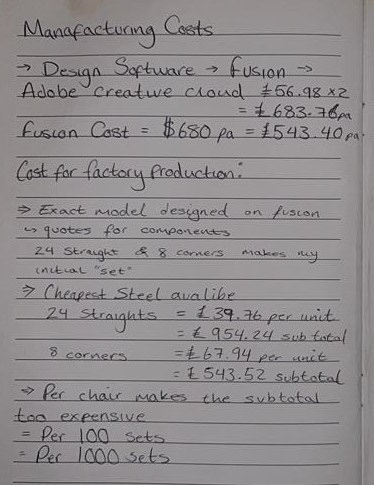 Manafacturing Costs
→ Design Software → fusion →
Adobe creative cloud £56.98 x2
= £683.76pa
fusion Cost = $680 pa = £543.40pa.
Cost for factory production:
⇒ Exact model designed on fusion
↳ quotes for components
24 Straight & 8 corners makes my
initial "set"
⇒ Cheapest Steel avalibe
24 Straights = £39.76 per unit
= £954.24 sub total
8 corners = £67.94 per unit
= £543.52 subtotal
⇒ Per chair makes the subtotal
too expensive
= Per 100 sets
= Per 1000 sets